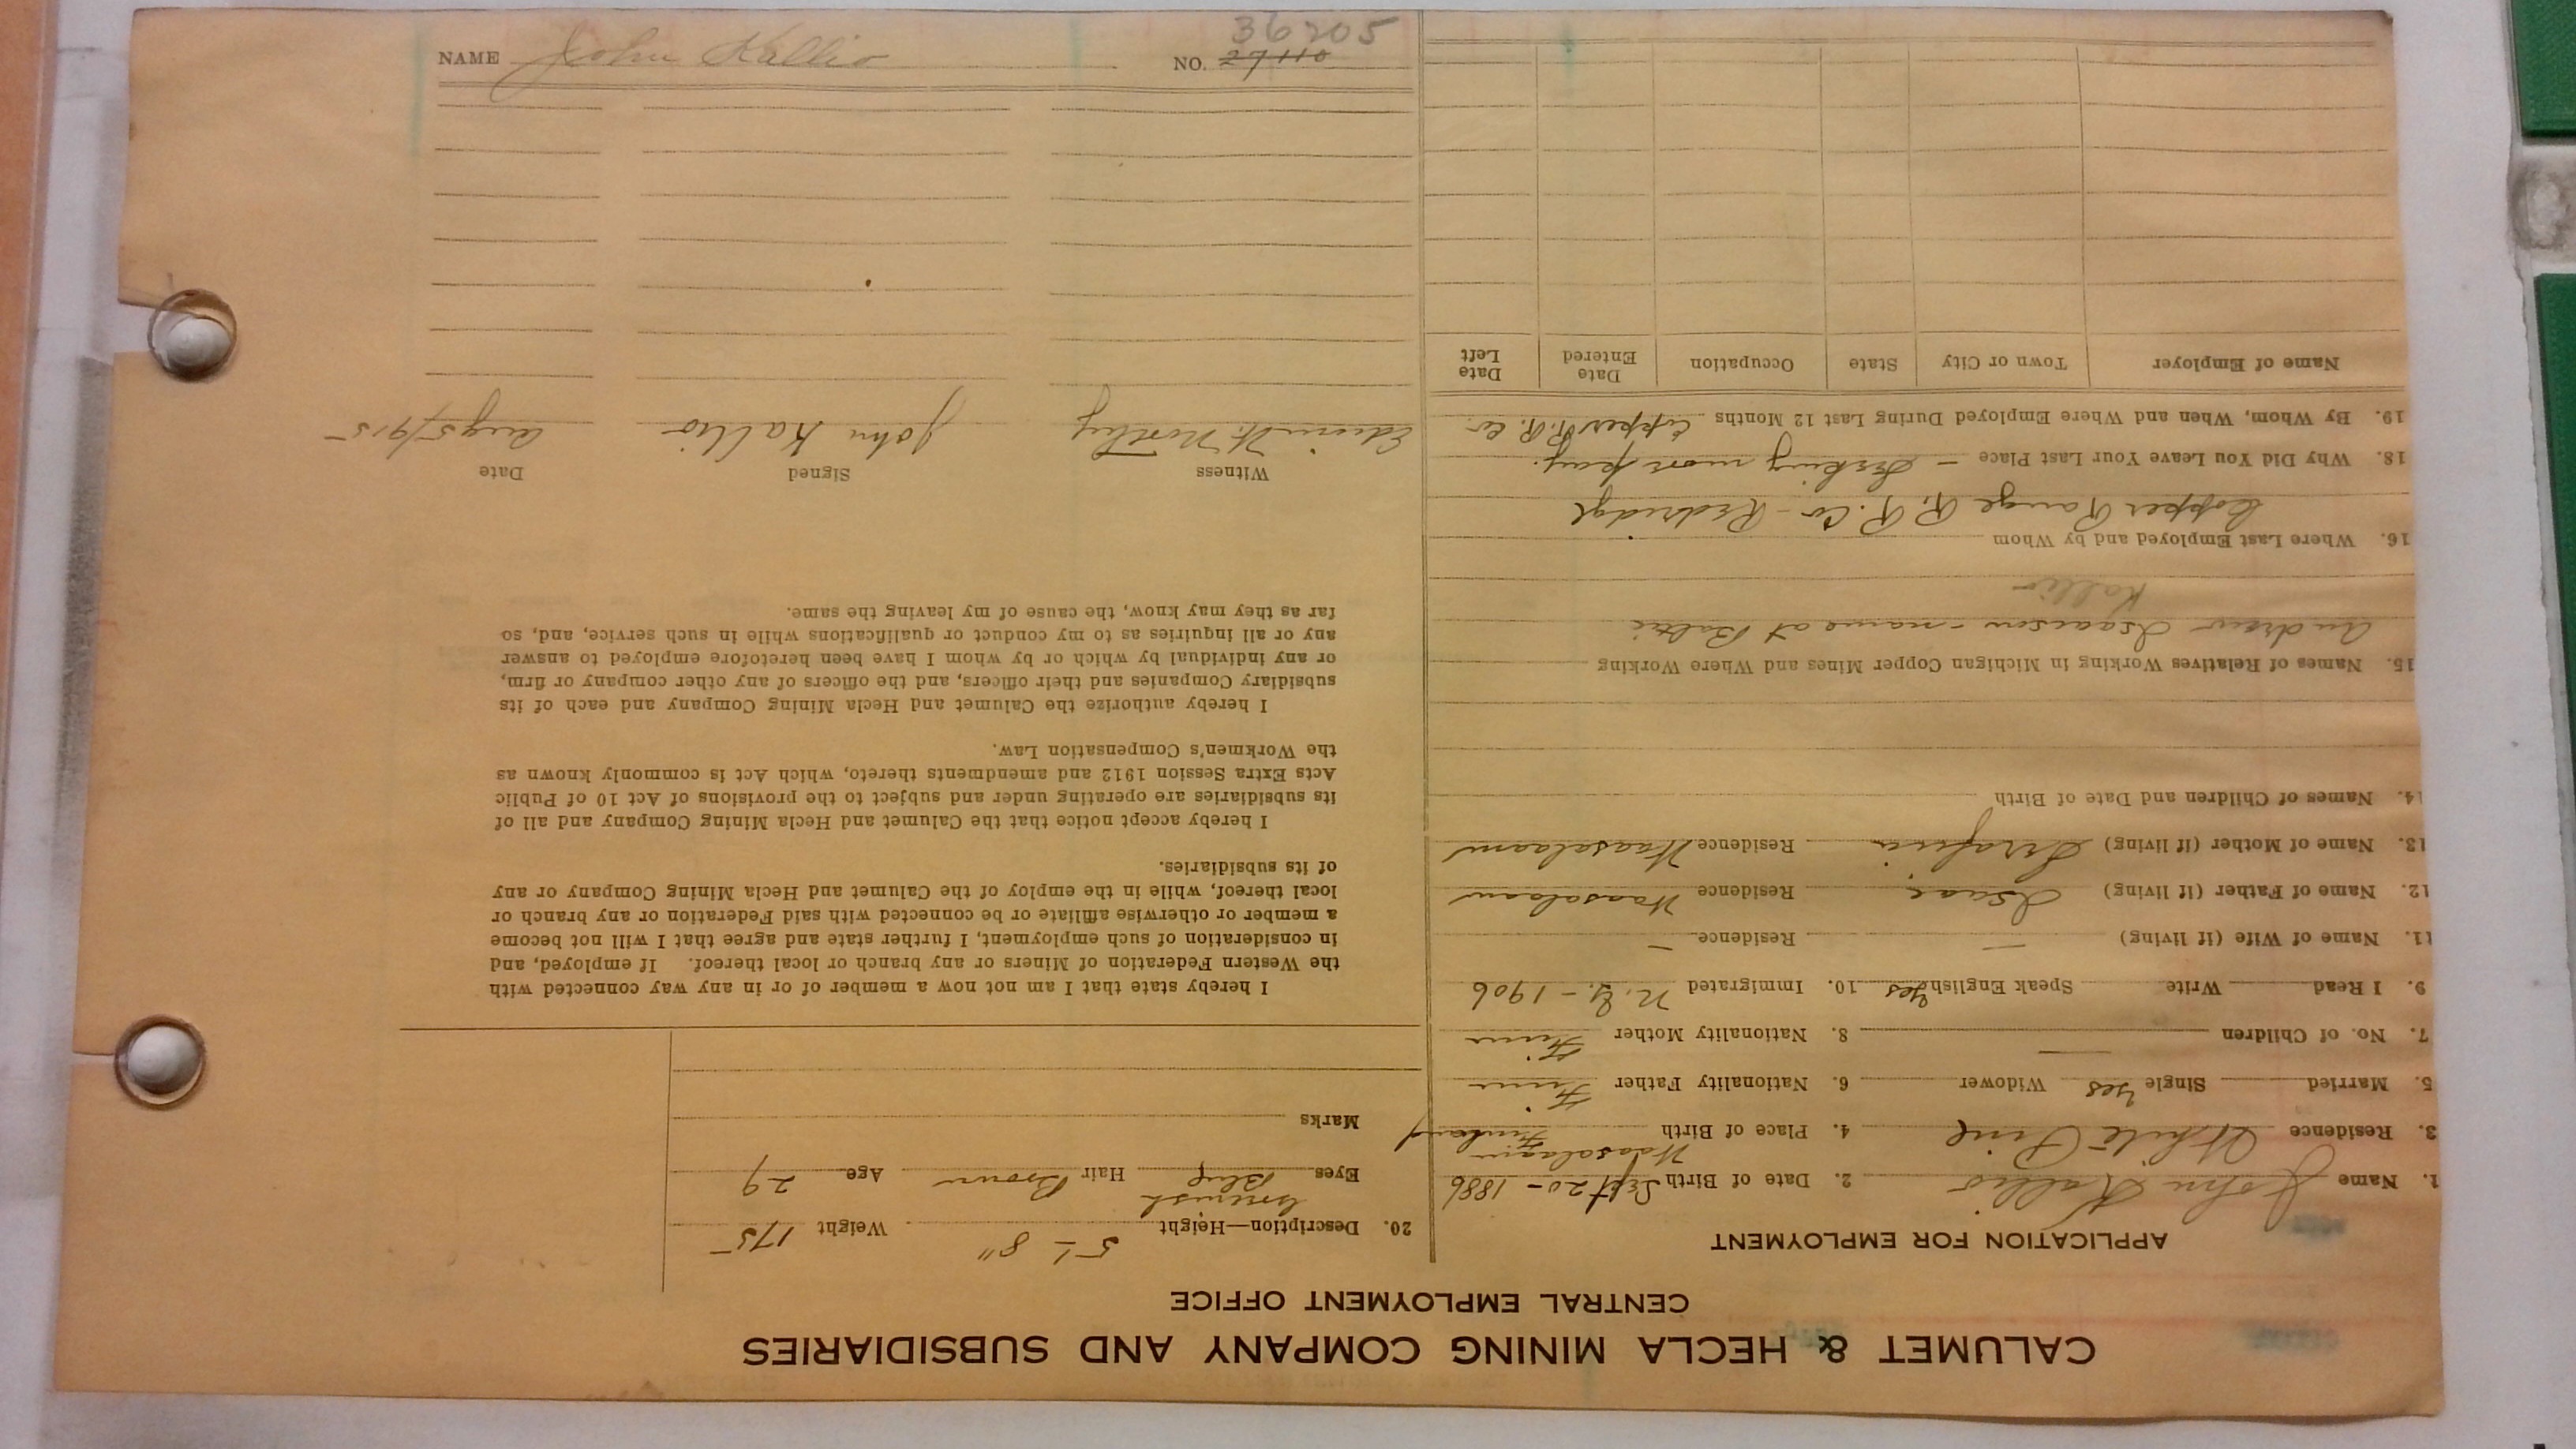 CALUMET & HECLA MINING COMPANY AND SUBSIDIARIES
CENTRAL EMPLOYMENT OFFICE
APPLICATION FOR EMPLOYMENT
1. Name John Kallio 2. Date of Birth Sept 20 - 1886
3. Residence White Pine 4. Place of Birth Waasalaani Finland
5. Married Single Yes Widower 6. Nationality Father Finn
7. No. of Children — 8. Nationality Mother Finn
9. I Read Write Speak English Yes 10. Immigrated N.Y. - 1906
11. Name of Wife (if living) — Residence —
12. Name of Father (if living) Isaac Residence Waasalaani
13. Name of Mother (if living) Serafiia Residence Waasalaani
14. Names of Children and Date of Birth
15. Names of Relatives Working in Michigan Copper Mines and Where Working
Andrew Isaacson - name at Baltic
Kallio
16. Where Last Employed and by Whom
Copper Range R. R. Co - Redridge
18. Why Did You Leave Your Last Place - Seeking more pay.
19. By Whom, When and Where Employed During Last 12 Months Copper R. R. Co.
Name of Employer Town or City State Occupation Date Entered Date Left
20. Description—Height 5' - 8" Weight 175
Greenish
Eyes Blue Hair Brown Age 29
Marks
I hereby state that I am not now a member of or in any way connected with
the Western Federation of Miners or any branch or local thereof. If employed, and
in consideration of such employment, I further state and agree that I will not become
a member or otherwise affiliate or be connected with said Federation or any branch or
local thereof, while in the employ of the Calumet and Hecla Mining Company or any
of its subsidiaries.
I hereby accept notice that the Calumet and Hecla Mining Company and all of
its subsidiaries are operating under and subject to the provisions of Act 10 of Public
Acts Extra Session 1912 and amendments thereto, which Act is commonly known as
the Workmen's Compensation Law.
I hereby authorize the Calumet and Hecla Mining Company and each of its
subsidiary Companies and their officers, and the officers of any other company or firm,
or any individual by which or by whom I have been heretofore employed to answer
any or all inquiries as to my conduct or qualifications while in such service, and, so
far as they may know, the cause of my leaving the same.
Witness Signed Date
Edwin W. Northey John Kallio Aug 5/915
NAME John Kallio NO. 27110
36205